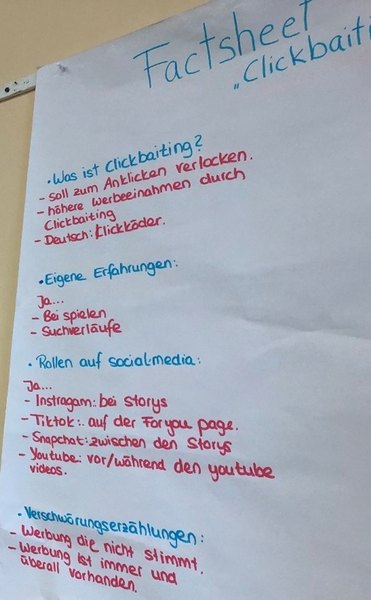 Factsheet
"Clickbaiti
• Was ist Clickbaiting?
- soll zum Anklicken verlocken.
- höhere Werbeeinahmen durch
Clickbaiting
- Deutsch: Klickköder.
• Eigene Erfahrungen:
Ja...
- Bei spielen
- Suchverläufe
• Rollen auf social-media:
Ja...
- Instragam: bei Storys
- Tiktok: auf der Foryou page.
- Snapchat: zwischen den Storys
- Youtube: vor/während den youtube
videos.
• Verschwörungserzählungen:
- Werbung die nicht stimmt.
- Werbung ist immer und
überall vorhanden.